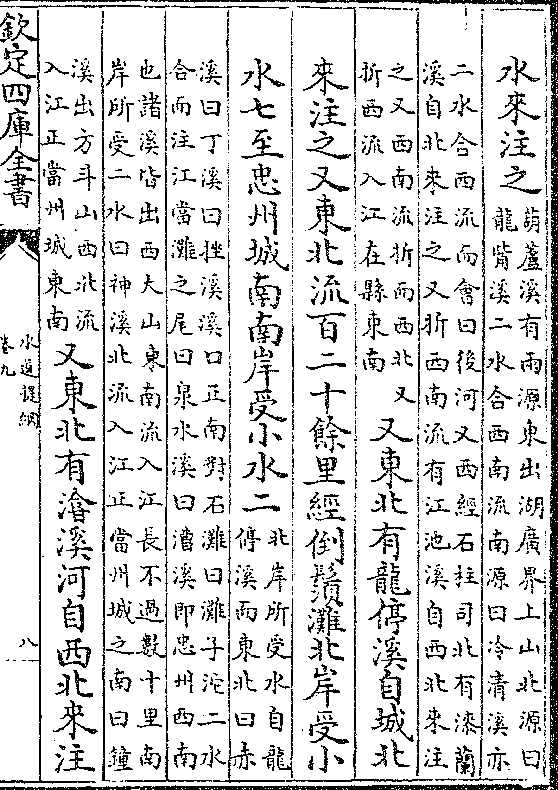 水來注之
葫蘆溪有兩源東出湖廣界上山北源曰
龍嘴溪二水合西南流南源曰冷清溪亦
二水合西流而會曰後河又西經石柱司北有漆蘭
溪自北來注之又折西南流有江池溪自西北來注
之又西南流折而西北又
折西流入江在縣東南
又東北有龍停溪自城北
來注之又東北流百二十餘里經倒鬚灘北岸受小
水七至忠州城南南岸受小水二
北岸所受水自龍
停溪而東北曰赤
溪曰丁溪曰挫溪溪口正南對石灘曰灘子沱二水
合而注江當灘之尾曰泉水溪曰漕溪即忠州西南
也諸溪皆出西大山東南流入江長不過數十里南
岸所受二水曰神溪北流入江正當州城之南曰鐘
溪出方斗山西北流
入江正當州城東南
又東北有濬溪河自西北來注
欽定四庫全書
水道提綱
卷九
八